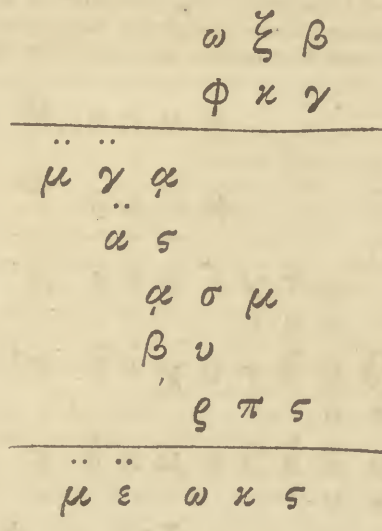 ω ξ β
φ κ γ
μ̈ γ̈ ͵α
α̈ ς
͵α σ μ
͵β υ
ρ π ς
μ̈ ε̈ ω κ ς